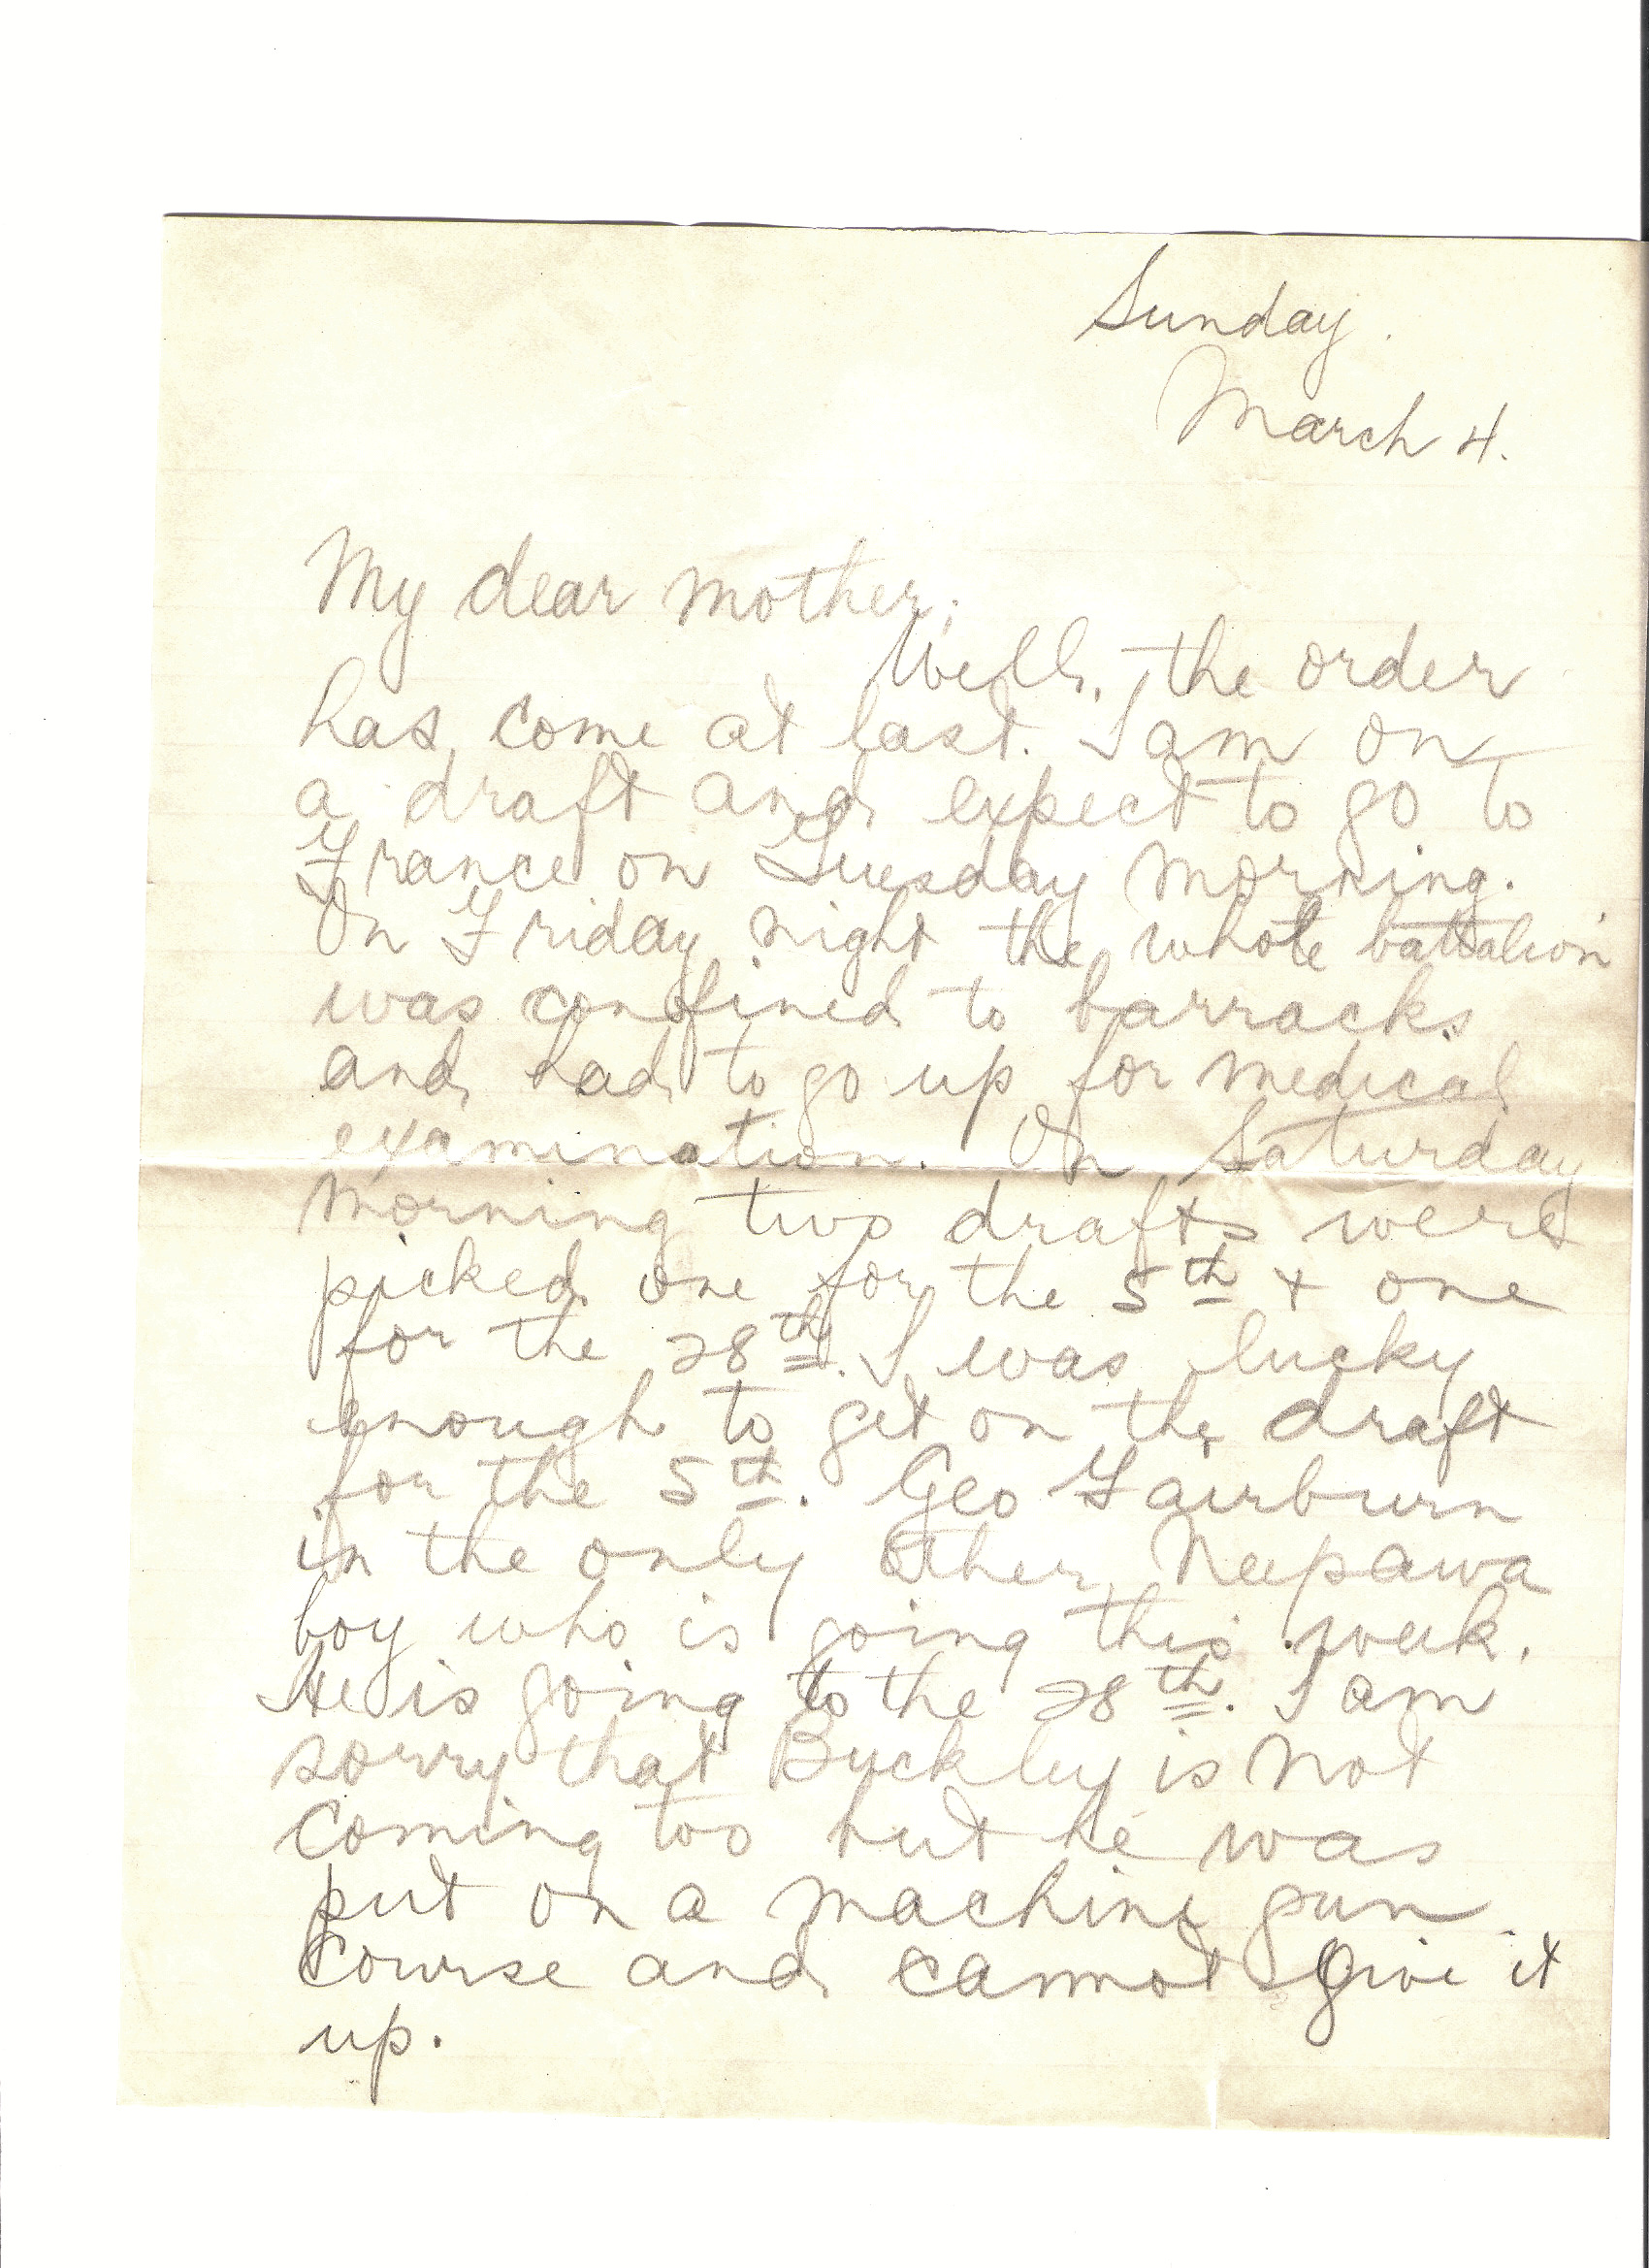 Sunday.
March 4.
My dear mother;
Well, the order
has come at last. I am on
a draft and expect to go to
France on Tuesday morning.
On Friday night the whole battalion
was confined to barracks
and had to go up for medical
examination. On Saturday
morning two drafts were
picked one for the 5th + one
for the 28th. I was lucky
enough to get on the draft
for the 5th. Geo Fairburn
is the only other Neepawa
boy who is going this week.
He is going to the 28th. I am
sorry that Buckley is not
coming too but he was
put on a machine gun
course and cannot give it
up.